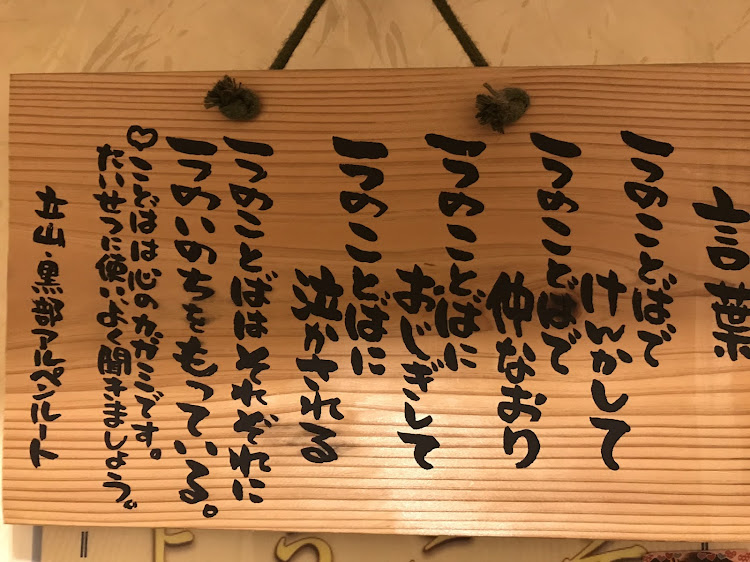 言葉
一つのことばで
けんかして
一つのことばで
仲なおり
一つのことばに
おじぎして
一つのことばに
泣かされる
一つのことばはそれぞれに
一つのいのちをもっている。
♡ことばは心のカガミです。
たいせつに使いよく聞きましょう。
立山・黒部アルペンルート